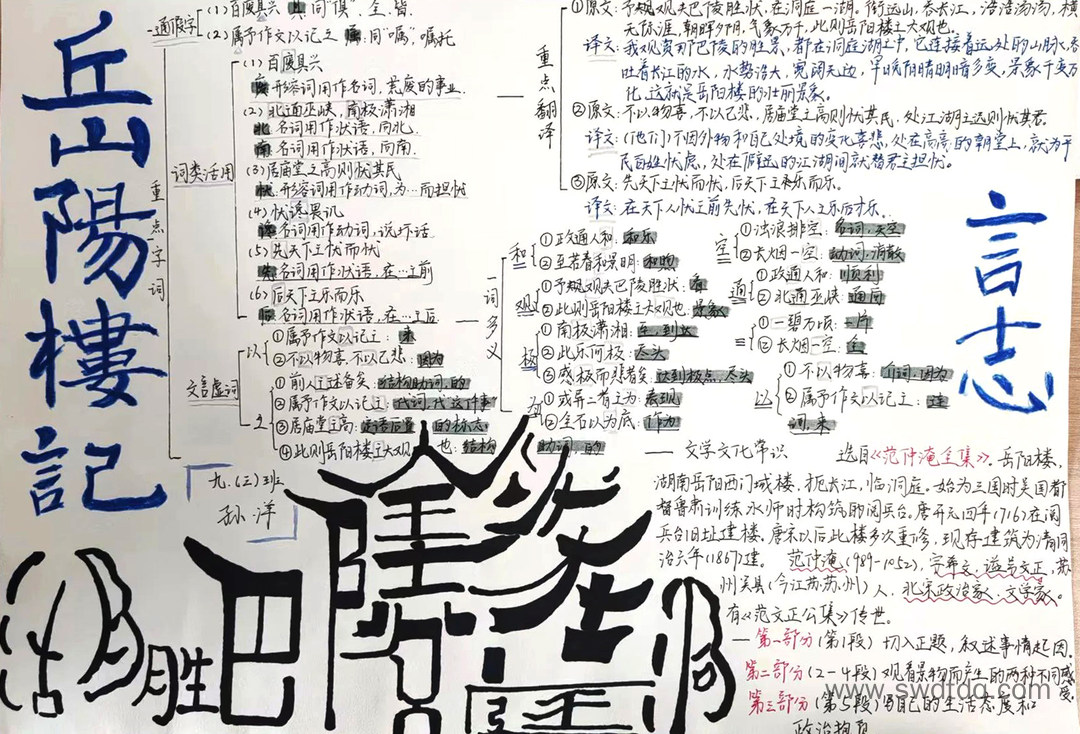 岳陽樓記
重点字词
通假字
(1)百废具兴 具同“俱”,全,皆.
(2)属予作文以记之 属:同“嘱”,嘱托
词类活用
(1)百废具兴
废 形容词用作名词,荒废的事业.
(2)北通巫峡,南极潇湘
北 名词用作状语,向北.
南 名词用作状语,向南.
(3)居庙堂之高则忧其民
忧 形容词用作动词,为…而担忧
(4)忧谗畏讥
谗 名词用作动词,说坏话.
(5)先天下之忧而忧
先 名词用作状语,在…之前
(6)后天下之乐而乐
后 名词用作状语,在…之后
文言虚词
以
①属予作文以记之:来
②不以物喜,不以己悲:因为
之
①前人之述备矣:结构助词,的
②属予作文以记之:代词,代这件事
③居庙堂之高:定语后置的标志
④此则岳阳楼之大观也:结构助词,的
九.(三)班
孙洋
重点翻译
①原文:予观夫巴陵胜状,在洞庭一湖。衔远山,吞长江,浩浩汤汤,横
无际涯,朝晖夕阴,气象万千,此则岳阳楼之大观也。
译文:我观赏那巴陵的胜景,都在洞庭湖上,它连接着远处的山脉,吞
吐着长江的水,水势浩大,宽阔无边,早晚阴晴明暗多变,景象千变万
化,这就是岳阳楼的壮丽景象。
②原文:不以物喜,不以己悲,居庙堂之高则忧其民,处江湖之远则忧其君.
译文:(他们)不因外物和自己处境的变化喜悲,处在高高的朝堂上,就为平
民百姓忧虑,处在僻远的江湖间就替君主担忧。
③原文:先天下之忧而忧,后天下之乐而乐.
译文:在天下人忧之前先忧,在天下人之乐后才乐.
一词多义
和
①政通人和:和乐
②至若春和景明:和煦
观
①予观夫巴陵胜状:看
②此则岳阳楼之大观也:景象
极
①南极潇湘:至,到达
②此乐何极:尽头
③感极而悲者矣:达到极点,尽头
为
①或异二者之为:表现
②全石以为底:作为
空
①浊浪排空:名词,天空
②长烟一空:动词,消散
通
①政通人和:顺利
②北通巫峡:通向
一
①一碧万顷:一片
②长烟一空:全
以
①不以物喜:介词,因为
②属予作文以记之:连
词,来
言志
文学文化常识 选自《范仲淹全集》.岳阳楼,
湖南岳阳西门城楼,扼长江,临洞庭。始为三国时吴国都
督鲁肃训练水师时构筑的阅兵台.唐开元四年(716)在阅
兵台旧址建楼。唐宋以后此楼多次重修,现存建筑为清同
治六年(1867)建。范仲淹(989-1052),字希文,谥号文正,苏
州吴县(今江苏苏州)人,北宋政治家、文学家。
有《范文正公集》传世。
第一部分(第1段)切入正题,叙述事情起因.
第二部分(2-4段)观看景物而产生的两种不同感
受.
第三部分(第5段)写自己的生活态度和
政治抱负
胜
巴
www.swdfdq.com